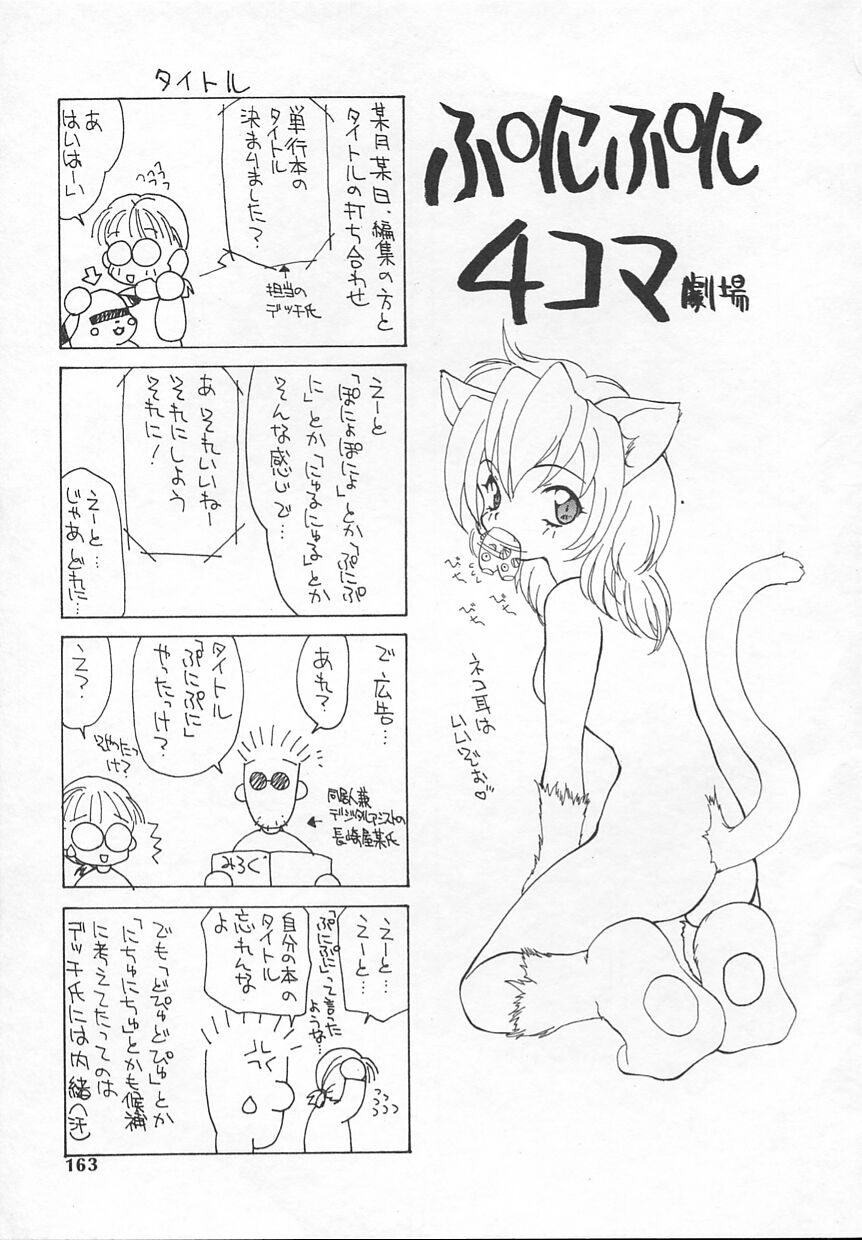 ぷにぷに
4コマ劇場
びち
びち
びち
ネコ耳は
いいでお♡
タイトル
某月某日、編集の方と
タイトルの打ち合わせ
単行本の
タイトル
決まりました?
担当の
デッチ氏
あ
はいはーい
えーと
「ぽにょぽにょ」とか「ぷにぷ
に」とか「にゅるにゅる」とか
そんな感じで…
あ それいいねー
それにしよう
それに!
えーと…
じゃあ どれに…
で 広告…
あれ?
タイトル
「ぷにぷに」
やったっけ?
同居人兼
デジタルアシストの
長崎屋某氏
みろく
え?
そやたっけ?
えーと…
えーと…
「ぷにぷに」って言った
ような…
自分の本の
タイトル
忘れんな
よ
でも「どぴゅどぴゅ」とか
「にちゅにちゅ」とかも候補
に考えてたってのは
デッチ氏には内緒(汗)
163